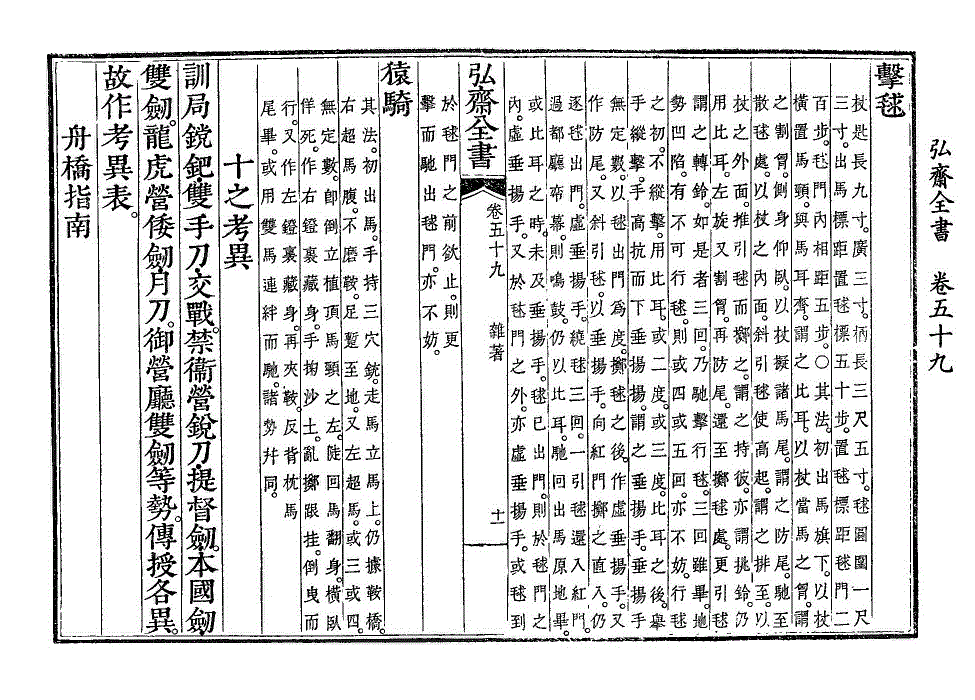 弘齋全書　卷五十九
擊毬
杖匙長九寸。廣三寸。柄長三尺五寸。毬圓圍一尺
三寸。出馬標距置毬標五十步。置毬標距毬門二
百步。毬門內相距五步。〇其法。初出馬旗下。以杖
橫置馬頸。與馬耳齊。謂之比耳。以杖當馬之胷。謂
之割胷。側身仰臥。以杖擬諸馬尾。謂之防尾。馳至
散毬處。以杖之內面。斜引毬使高起。謂之排至。以
杖之外面。推引毬而擲之。謂之持彼。亦謂挑鈴。仍
以比耳。左旋又割胷。再防尾。還至擲毬處。更引毬
謂之轉鈴。如是者三回。乃馳擊行毬。三回雖畢。地
勢凹陷。有不可行毬。則或四或五回。亦不妨。行毬
之初。不縱擊。用比耳。或二度。或三度。比耳之後。舉
手縱擊。手高抗而下垂揚揚。謂之垂揚手。擊手
無定數。以毬出門爲度。擲毬之後。作虛垂揚手。又
作防尾。又斜引毬。以垂揚手。向紅門擲之直入。仍
逐毬出門。虛垂揚手。繞毬三回。一引毬還入紅門。
過都廳帟幕。則鳴鼓。仍繞以比耳。馳回原地畢。
或比耳之時。未及垂揚手。毬已出門。則於毬門之
內。虛垂揚手。又於毬門之外。亦虛垂揚手。或毬到
弘齋全書　卷五十九　雜著　十一
於毬門之前欲止。則更
擊而馳出毬門。亦不妨。
猿騎
其法。初出馬。手持三穴銃。走馬立馬上。仍據鞍橋
右超馬腹。不磨鞍。足蹔至地。又左超馬。或三或四。
無定數。卽倒立植頂馬頸之左。陡回馬翻身。橫臥
佯死。作右鐙裏藏身。手掬沙土。亂擲跟挂。倒曳而
行。又作左鐙裏藏身。再夾鞍。反背枕馬
尾畢。或用雙馬連絆而馳。諸勢幷同。
十之考異
訓局鎲鈀雙手刀交戰。禁衞營銳刀提督劍。本國劍
雙劍。龍虎營倭劍月刀。御營廳雙劍等勢。傳授各異。
故作考異表。
舟橋指南